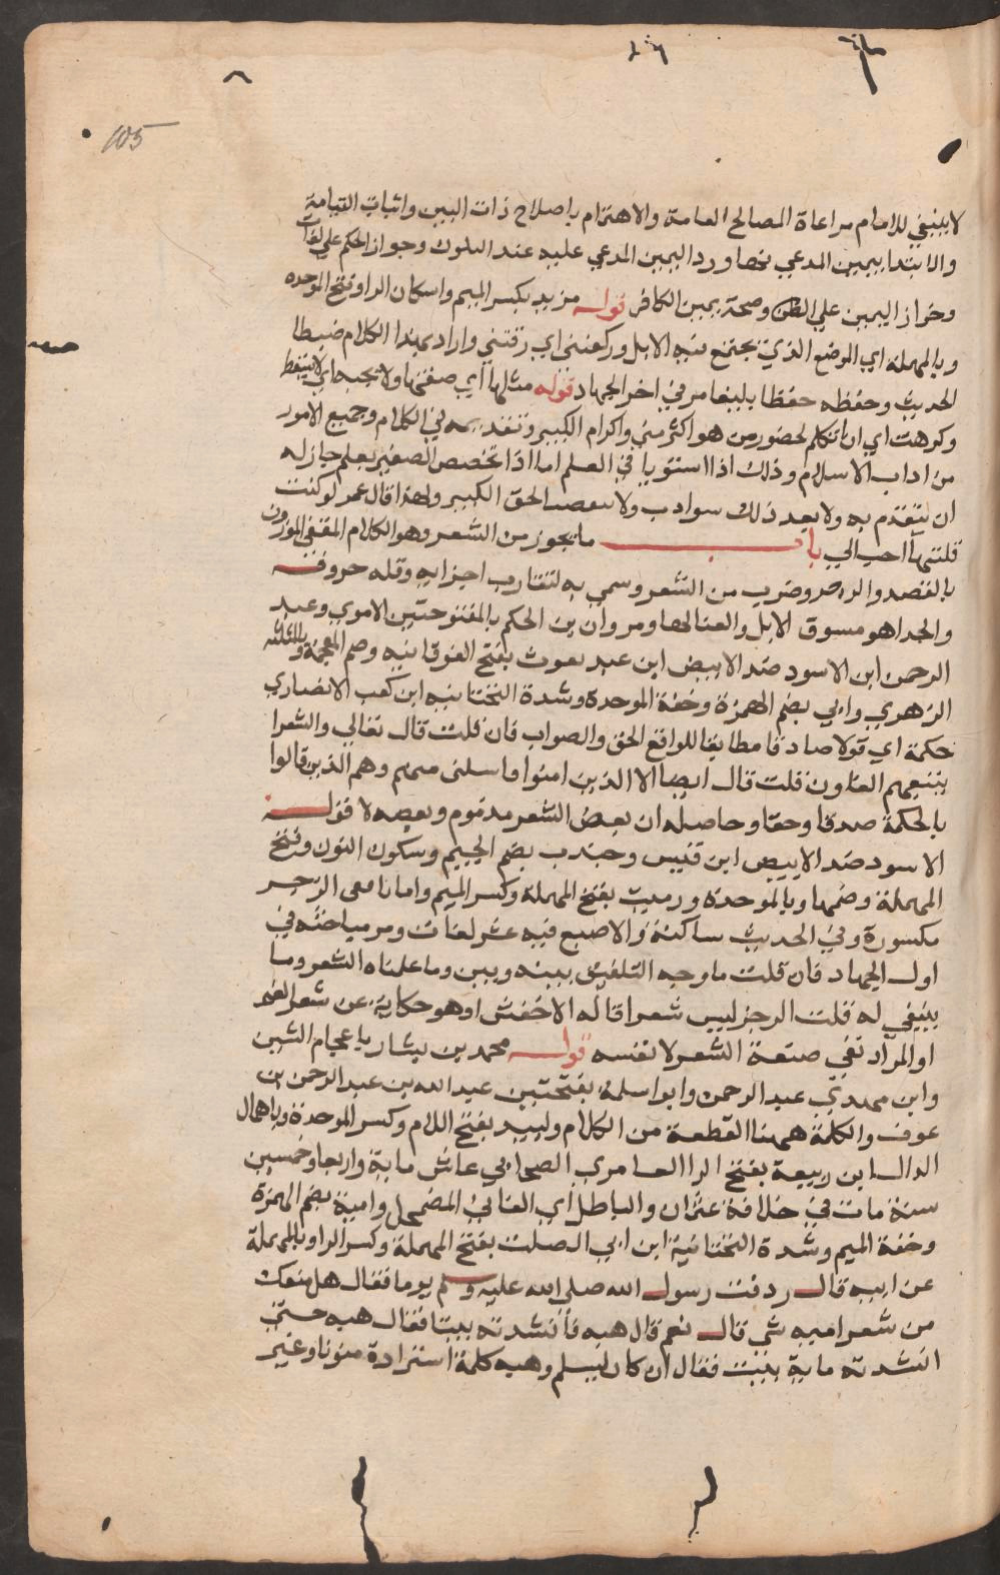 105
لا ينبغي للامام مراعاة المصالح العامة والاهتمام باصلاح ذات البين واثبات القسامة
والابتدا بيمين المدعي فيها ورد اليمين المدعي عليه عند النكول وجواز الحكم علي الغائب
وجواز اليمين علي الظن وصحة يمين الكافر قوله مزيد بكسر الميم واسكان الرا وفتح الموحدة
وبالمهملة اي الموضع الذي تجتمع فيه الابل وركضتني اي رفستني واراد بهذا الكلام ضبط
الحديث وحفظه حفظا بليغا مر في اخر الجهاد قوله مثلها اي صفتها ولا تحت اي لا يسقط
وكرهت اي ان اتكلم لحضور من هو اكثر مني واكرام الكبير وتقديمه في الكلام وجميع الامور
من اداب الاسلام وذلك اذا استويا في العلم اما اذا تخصص الصغير بعلم جاز له
ان يتقدم به ولا يعد ذلك سوادب ولا تنقيصا لحق الكبير ولهذا قال عمر لو كنت
قلتها احب الي باب ما يجوز من الشعر وهو الكلام المقفي الموزون
بالقصد والرجز وضرب من الشعر وسمي به لتقارب اجزايه وقلة حروفه
والحدا هو سوق الابل والغنا لها ومروان بن الحكم بالمفتوحتين الاموي وعبد
الرحمن ابن الاسود ضد الابيض ابن عبد يغوث بفتح الفوقانيه وضم المعجمة وبالمثلثة
الزهري وابي بضم الهمزة وخفة الموحدة وشدة التحتانيه ابن كعب الانصاري
حكمة اي قولا صادقا مطابقا للواقع الحق والصواب فان قلت قال تعالي والشعرا
يتبعهم الغاون قلت قال ايضا الا الذين امنوا فاستثني منهم وهم الذين قالوا
بالحكمة صدقا وحقا وحاصله ان بعض الشعر مذموم وبعضه لا قوله
الاسود ضد الابيض ابن قيس وجندب بضم الجيم وسكون النون وفتح
المهملة وضمها وبالموحدة ودميت بفتح المهملة وكسر الميم واما تا في الرجز
مكسورة وفي الحديث ساكنة والاصبع فيه عشر لغات ومر مباحثه في
اول الجهاد فان قلت ما وجه التلفيق بينه وبين وما علمناه الشعر وما
ينبغي له قلت الرجز ليس شعرا قاله الاخفش او هو حكاية عن شعر الغير
او المراد نفي صنعة الشعر لا نفسه قوله محمد بن بشار باعجام الشين
وابن مهدي عبد الرحمن وابو اسلمة بفتحتين عبد الله بن عبد الرحمن بن
عوف والكلمة ههنا القطعة من الكلام ولبيد بفتح اللام وكسر الموحدة وباهمال
الدال ابن ربيعة بفتح الرا العامري الصحابي عاش ماية واربعا وخمسين
سنة مات في خلافة عثمان والباطل اي الفاني المضمحل وامية بضم الهمزة
وخفة الميم وشدة التحتانية ابن ابي الصلت بفتح المهملة وكسر الرا وبالمهملة
عن ابيه قال ردفت رسول الله صلى الله عليه وسلم يوما فقال هل معك
من شعر اميه شي قال نعم قال هيه فانشدته بيتا فقال هيه حتي
انشدته ماية بيت فقال ان كاد ليسلم وهيه كلمة استزادة منونا وغير